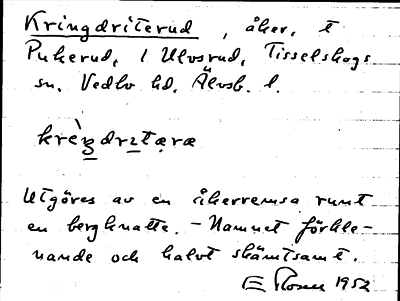 Kringdriterud, åker, t
Pukerud, 1 Ulvsrud, Tisselskogs
sn. Vedbo hd, Älvsb. l.
krèŋdrɪtæræ
Utgöres av en åkerremsa runt
en bergknatte. - Namnet förkle-
nande och halvt skämtsamt.
E Rosén 1952